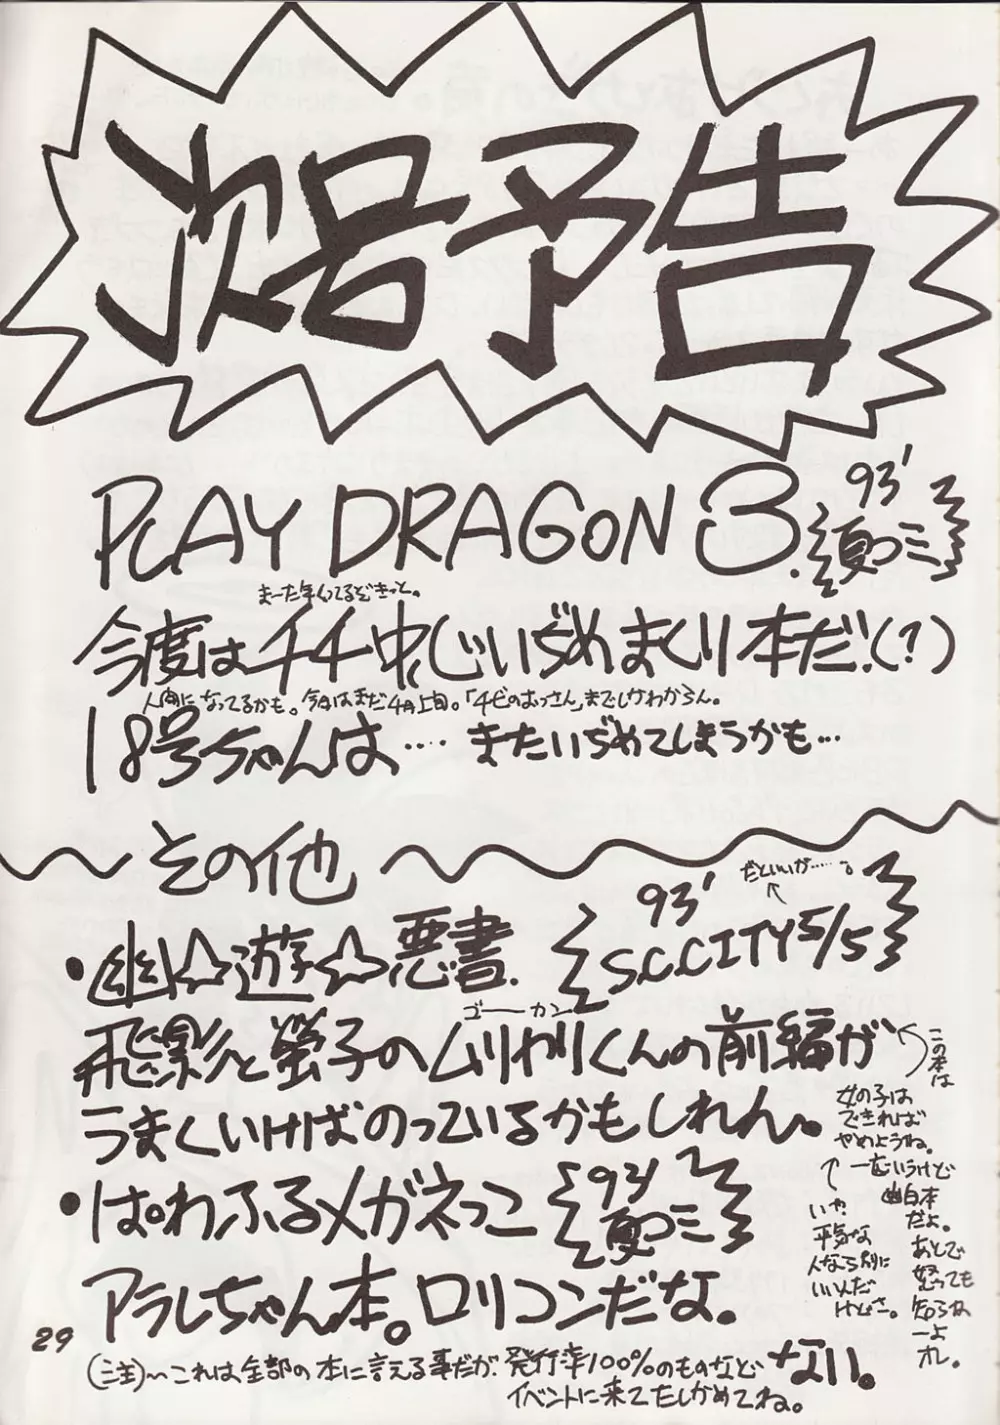 次号予告
PLAY DRAGON 3.
93'
夏コミ
まーた年くってるぞきっと。
今度はチチ中心じいぢめまくり本だ!(?)
人間になってるかも。今日はまだ4月上旬。「チビのおっさん」までしかわからん。
18号ちゃんは‥‥またいぢめてしまうかも…
その他
だといいが……。
・幽☆遊☆悪書.
93'
S.C.CITY5/5
ゴーカン
飛影と螢子のムリヤリくんの前編が
うまくいけばのっているかもしれん。
この本は
女の子は
できれば
やめようね。
一応いうけど
幽白本
だよ。
あとで
怒っても
知らねーよ
オレ。
いや
平気な
人なら別に
いいんだ
けどさ。
・ぱわふるメガネっこ
93'
夏コミ
アラレちゃん本。ロリコンだな。
(注)〜これは全部の本に言える事だが、発行率100%のものなどない。
イベントに来てたしかめてね。
29